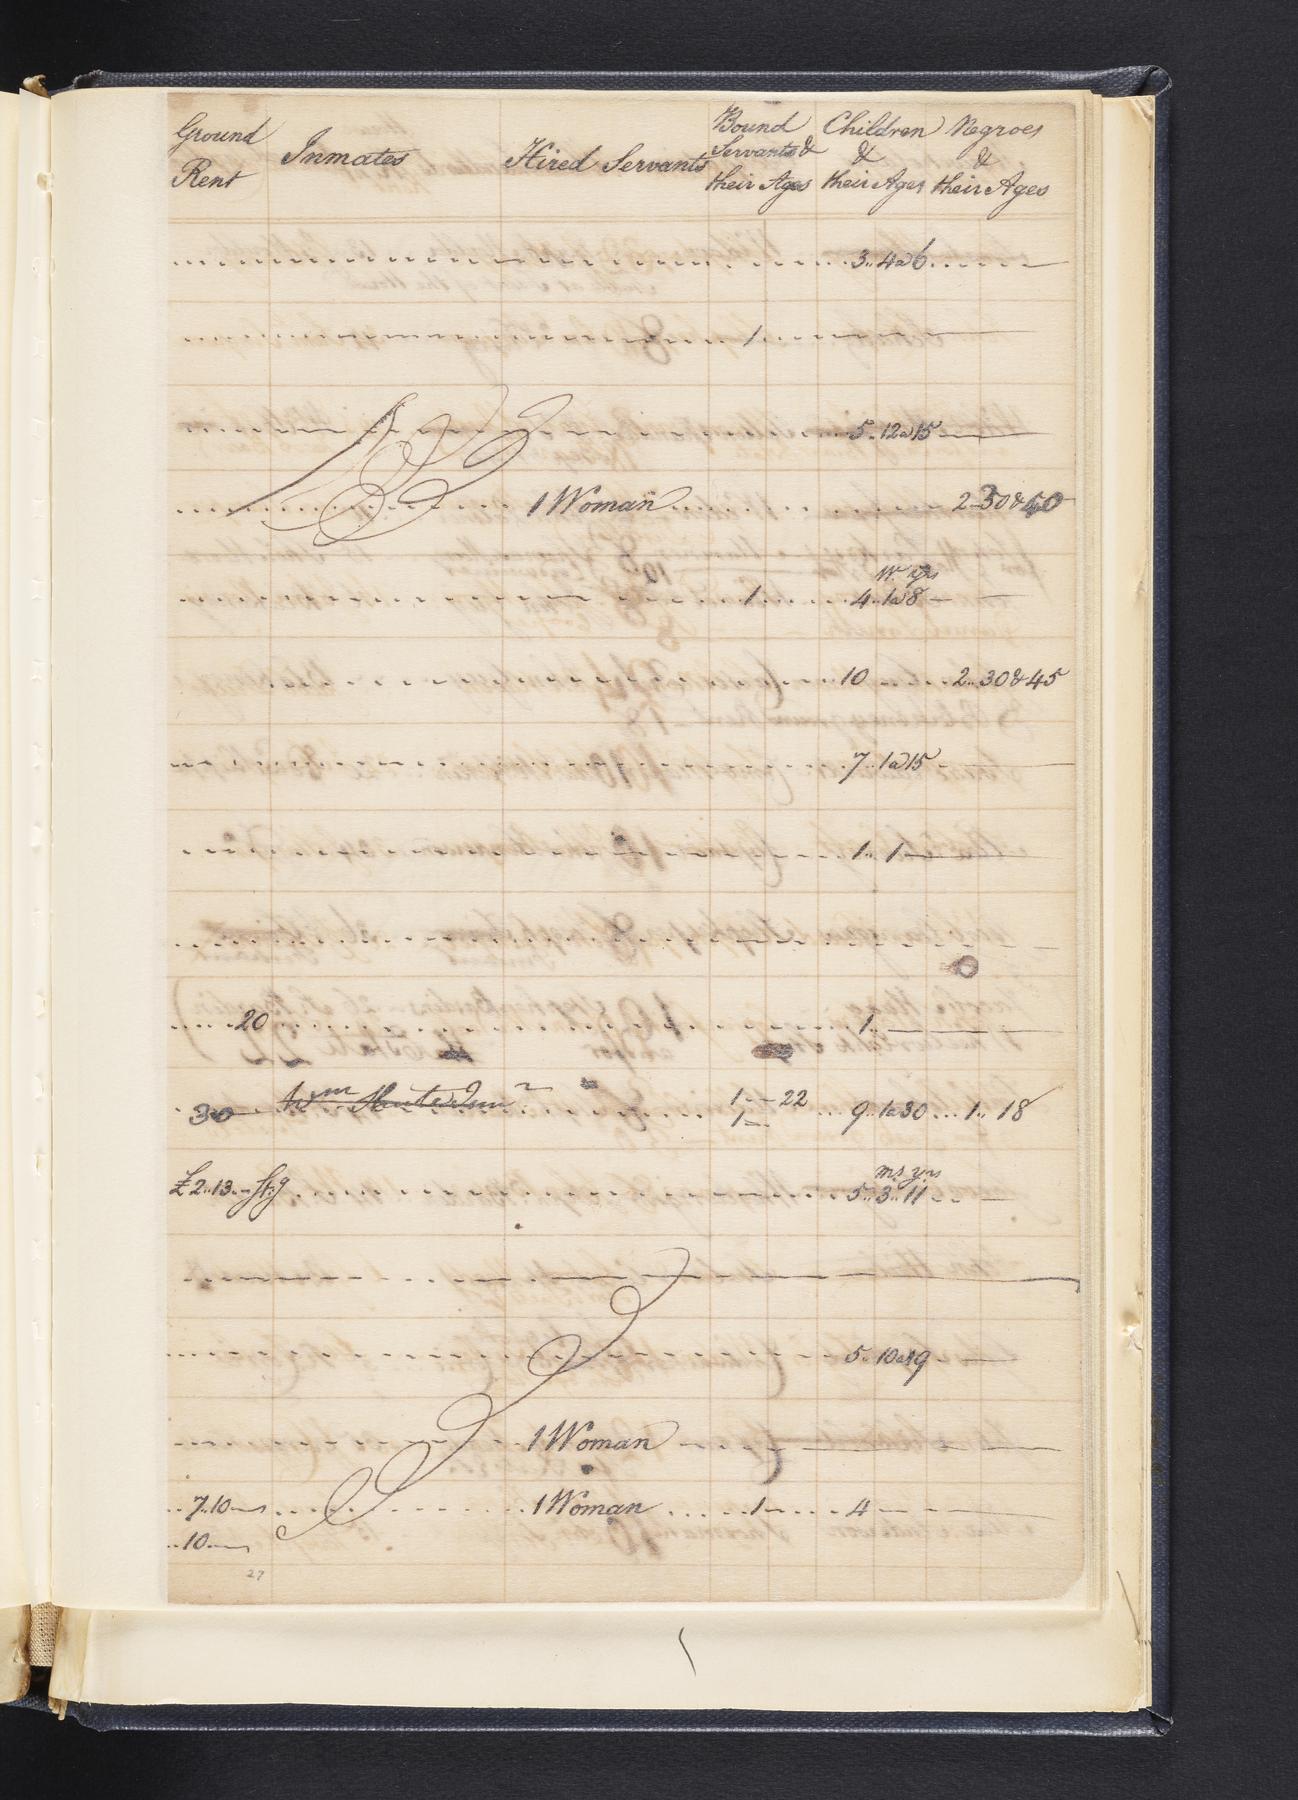 Ground Rent Inmates Hired Servants Bound Servants & their Ages Children & their Ages Negroes & their Ages
3.. 4 a 6
1
5.. 12 a 15
1 Woman 2 30 & 50
W. yrs
1 4.. 1 a 8
10 2.. 30 & 45
7.. 1 a 15
1.. 1
20 1
30 Wm 1 22 9.. 1 a 30 1.. 18
1
ms yrs
£2..13.. Stg 5.. 3.. 11
5.. 10 a 19
1 Woman
7..10 1 Woman 1 4
10
27